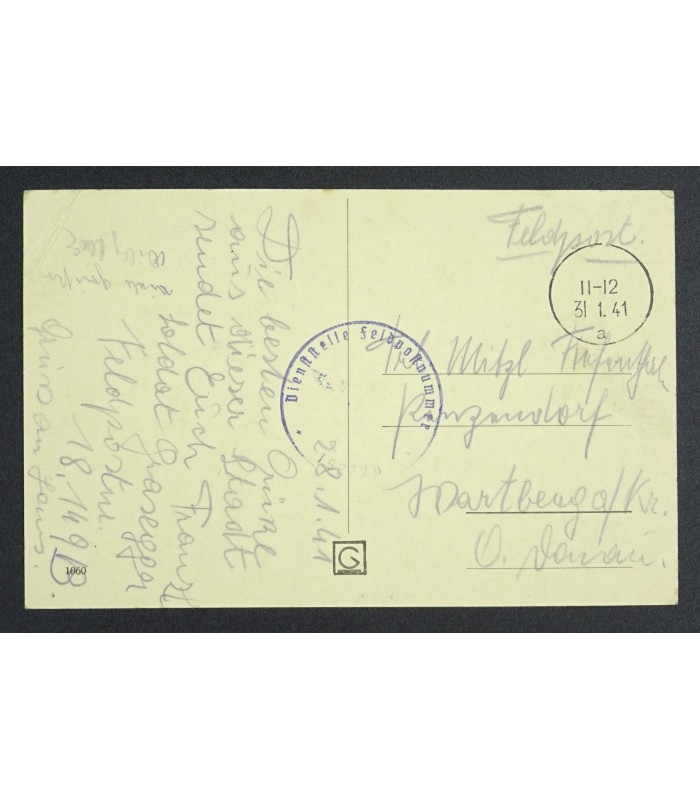 Die besten Grüße
aus dieser Stadt
sendet Euch Franzl
Soldat Grasegger
Feldpostnr.
18.149 B.
Gruss an Hans.
28.1.41
Feldpost.
11-12
31 1. 41
a
Dienststelle Feldpostnummer
Frl. Mitzl
Penzendorf
Wartberg a/Kr.
O. Donau.
1060
G